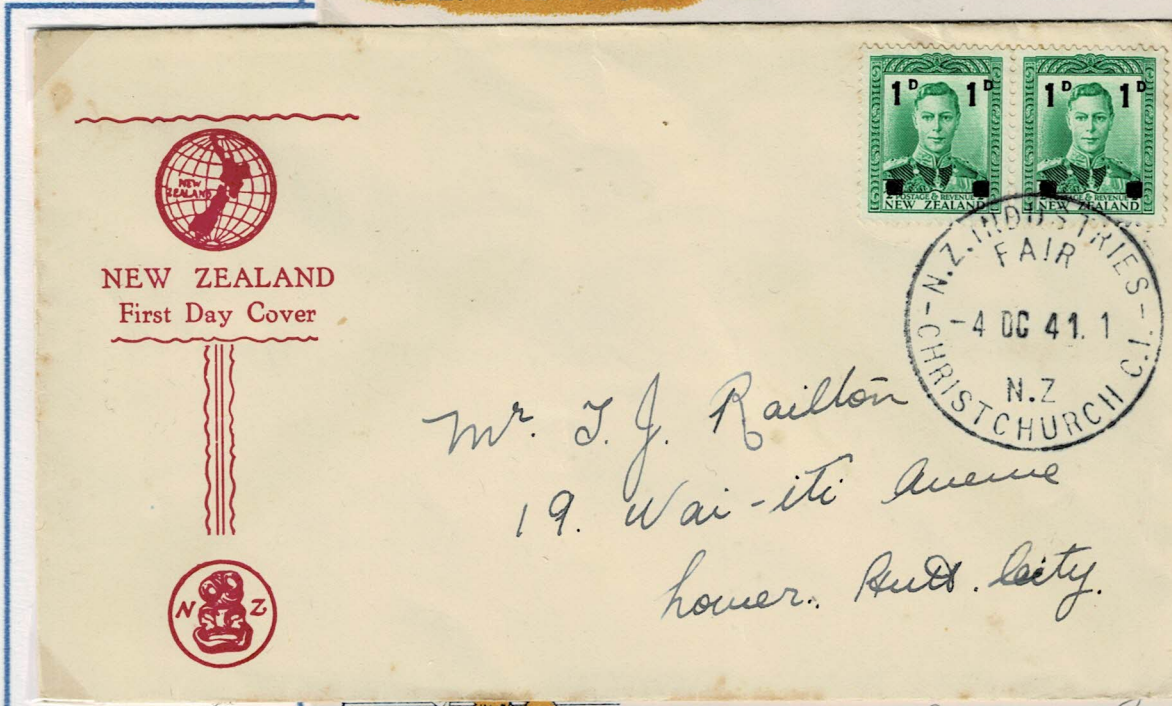 NEW
ZEALAND
NEW ZEALAND
First Day Cover
N Z
1D 1D
POSTAGE & REVENUE
NEW ZEALAND
1D 1D
POSTAGE & REVENUE
NEW ZEALAND
N.Z. INDUSTRIES
FAIR
-4 DC 41. 1
N.Z
CHRISTCHURCH C.1.
Mr. T. J. Railton
19. Wai-iti Avenue
Lower. Hutt. City.